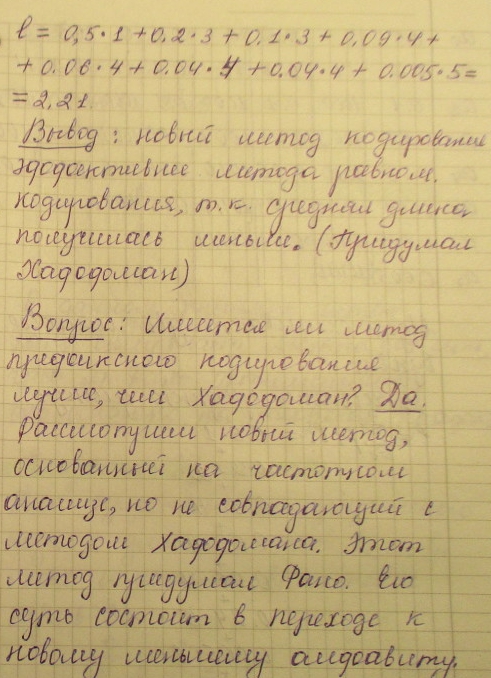 l = 0,5·1 + 0,2·3 + 0,1·3 + 0,09·4 +
+ 0.06·4 + 0.04·4 + 0.04·4 + 0.005·5 =
= 2,21
Вывод: новый метод кодирование
эффективнее метода равном.
кодирования, т.к. средняя длина
получилась меньше. (Придумал
Хаффман)
Вопрос: Имеется ли метод
префиксного кодирования
лучше, чем Хаффман? Да.
Рассмотрим новый метод,
основанный на частотном
анализе, но не совпадающий с
методом Хаффмана. Этот
метод придумал Фано. Его
суть состоит в переходе к
новому меньшему алфавиту.